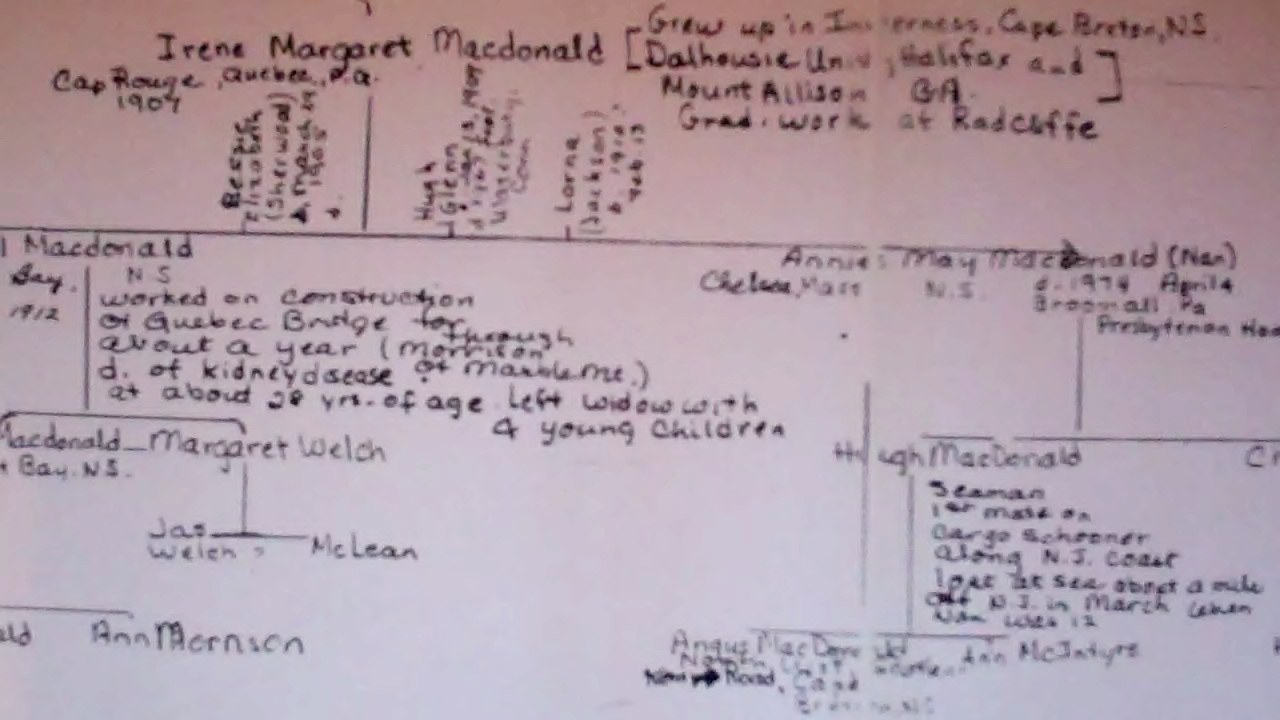 Irene Margaret Macdonald
Grew up in Inverness, Cape Breton, NS.
[Dalhousie Univ, Halifax and]
Mount Allison BA.
Grad. work at Radcliffe
Cap Rouge, Quebec, P.Q.
1907
Bessie
Elizabeth
(Sherwood)
b. March 29
1905
d.
Hugh
Glenn
Conn
Lorna
(Jackson)
b. 1910
Feb. 13
Macdonald
Bay.
1912
N S
worked on construction
of Quebec Bridge for
about a year (Morrison through
d. of kidney disease of
at about 28 yrs. of age. Left widow with
4 young children
Annie May Macdonald (Nan)
Chelsea, Mass N.S.
d. 1974 April 4
Broomall Pa
Presbyterian
Macdonald Margaret Welch
Bay. N.S.
Jas
Welch McLean
Ann Morrison
Hugh MacDonald
Seaman
1st mate on
Cargo Schooner
along N.J. Coast
lost at sea about a mile
off N.J. in March when
Nan was 12
Angus Ann McIntyre
Road,